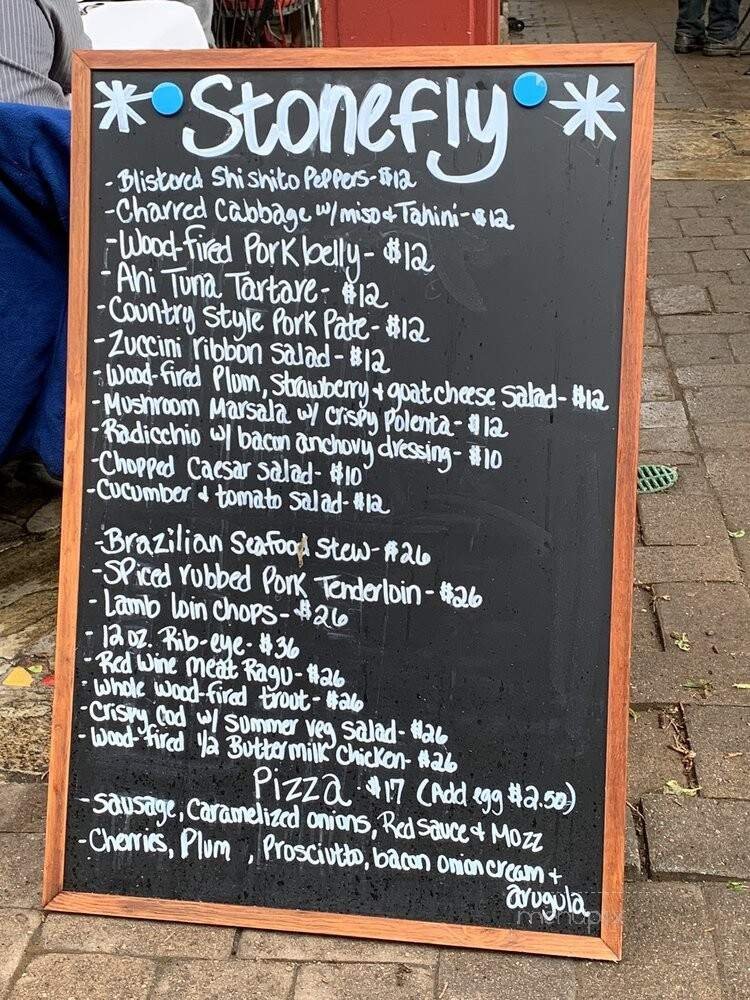 Stonefly
- Blistered Shishito Peppers - $12
- Charred Cabbage w/ miso & Tahini - $12
- Wood-fired Pork belly - $12
- Ahi Tuna Tartare - $12
- Country Style Pork Pate - $12
- Zuccini ribbon Salad - $12
- Wood-fired Plum, Strawberry + goat cheese Salad - $12
- Mushroom Marsala w/ Crispy Polenta - $12
- Radicchio w/ bacon anchovy dressing - $10
- Chopped Caesar Salad - $10
- Cucumber & tomato Salad - $12
- Brazilian Seafood Stew - $26
- Spiced rubbed Pork Tenderloin - $26
- Lamb loin chops - $26
- 12 oz. Rib-eye - $36
- Red Wine Meat Ragu - $26
- Whole wood-fired trout - $26
- Crispy Cod w/ Summer veg Salad - $26
- Wood-fired 1/2 Buttermilk Chicken - $26
Pizza - $17 (Add egg $2.50)
- Sausage, Caramelized onions, Red sauce & Mozz
- Cherries, Plum , Prosciutto, bacon onion cream +
arugula